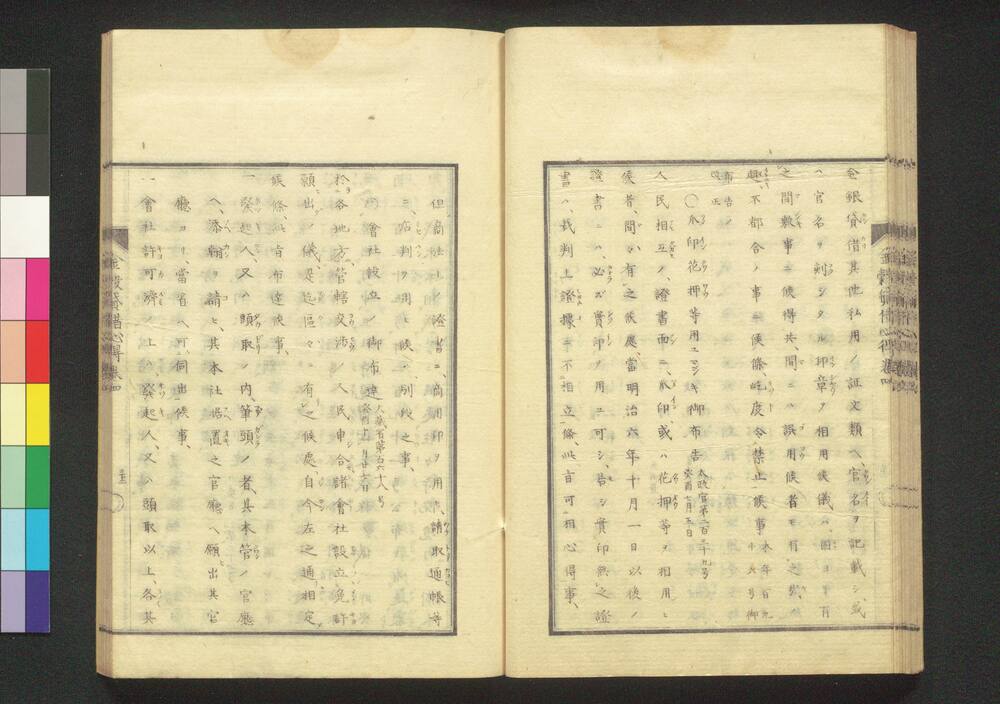 金銀貸借其他私用ノ証文類ヘ官名ヲ記載シ或
ハ官名ヲ刻シタル印章ヲ相用候儀ハ固ヨリ有
之間敷事ニ候得共間ニハ誤用候者モ有之哉
趣不都合ノ事ニ候條屹度令禁止候事
〇爪印花押等用ユマジキ御布告
人民相互ノ證書面ニ爪印或ハ花押等ヲ相用ヒ
候者間々有之候處當明治六年十月一日以後ノ
證書ニハ必ズ實印ヲ用ユ可シ若シ實印無之證
書ハ裁判上證據ニ不相立條此旨可相心得事
但商社上ノ證書ニ商用印ヲ用ヒ請取通帳等
ニ店判ヲ用ヒ候ハ別段之事
〇會社設立ノ御布達
於各地方管轄交渉ノ人民申合諸會社設立免許
願出ノ儀是迄區々ニ有之候處自今左之通相定
候條此旨布達候事
一發起人又ハ頭取ノ内筆頭ノ者其本管ノ官廳
ヘ添翰ヲ請ヒ其本社据置之官廳ヘ願出其官
廳ヨリ當省ヘ可伺出候事
一會社許可濟ノ上ハ發起人又ハ頭取以上各其